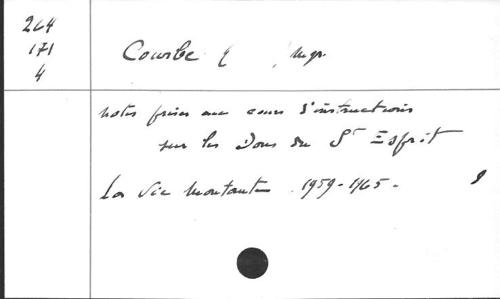 264
171
4
Courbe E , Mgr.
notes prises au cours d'instructions
sur les Dons du St Esprit
La Vie Montante . 1959-1965.